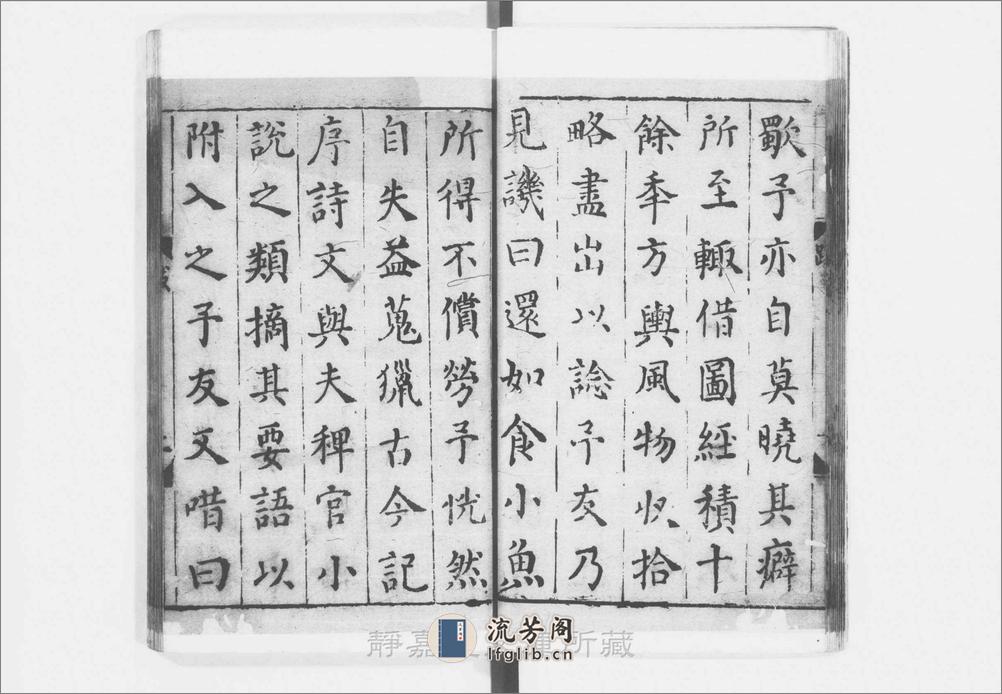 歟予亦自莫曉其癖
所至輙借圖經積十
餘年方輿風物收拾
略盡出以諗予友乃
見譏曰還如食小魚
所得不償勞予恍然
自失益蒐獵古今記
序詩文與夫稗官小
說之類摘其要語以
附入之予友又喈曰
靜嘉所藏
流芳阁
lfglib.cn